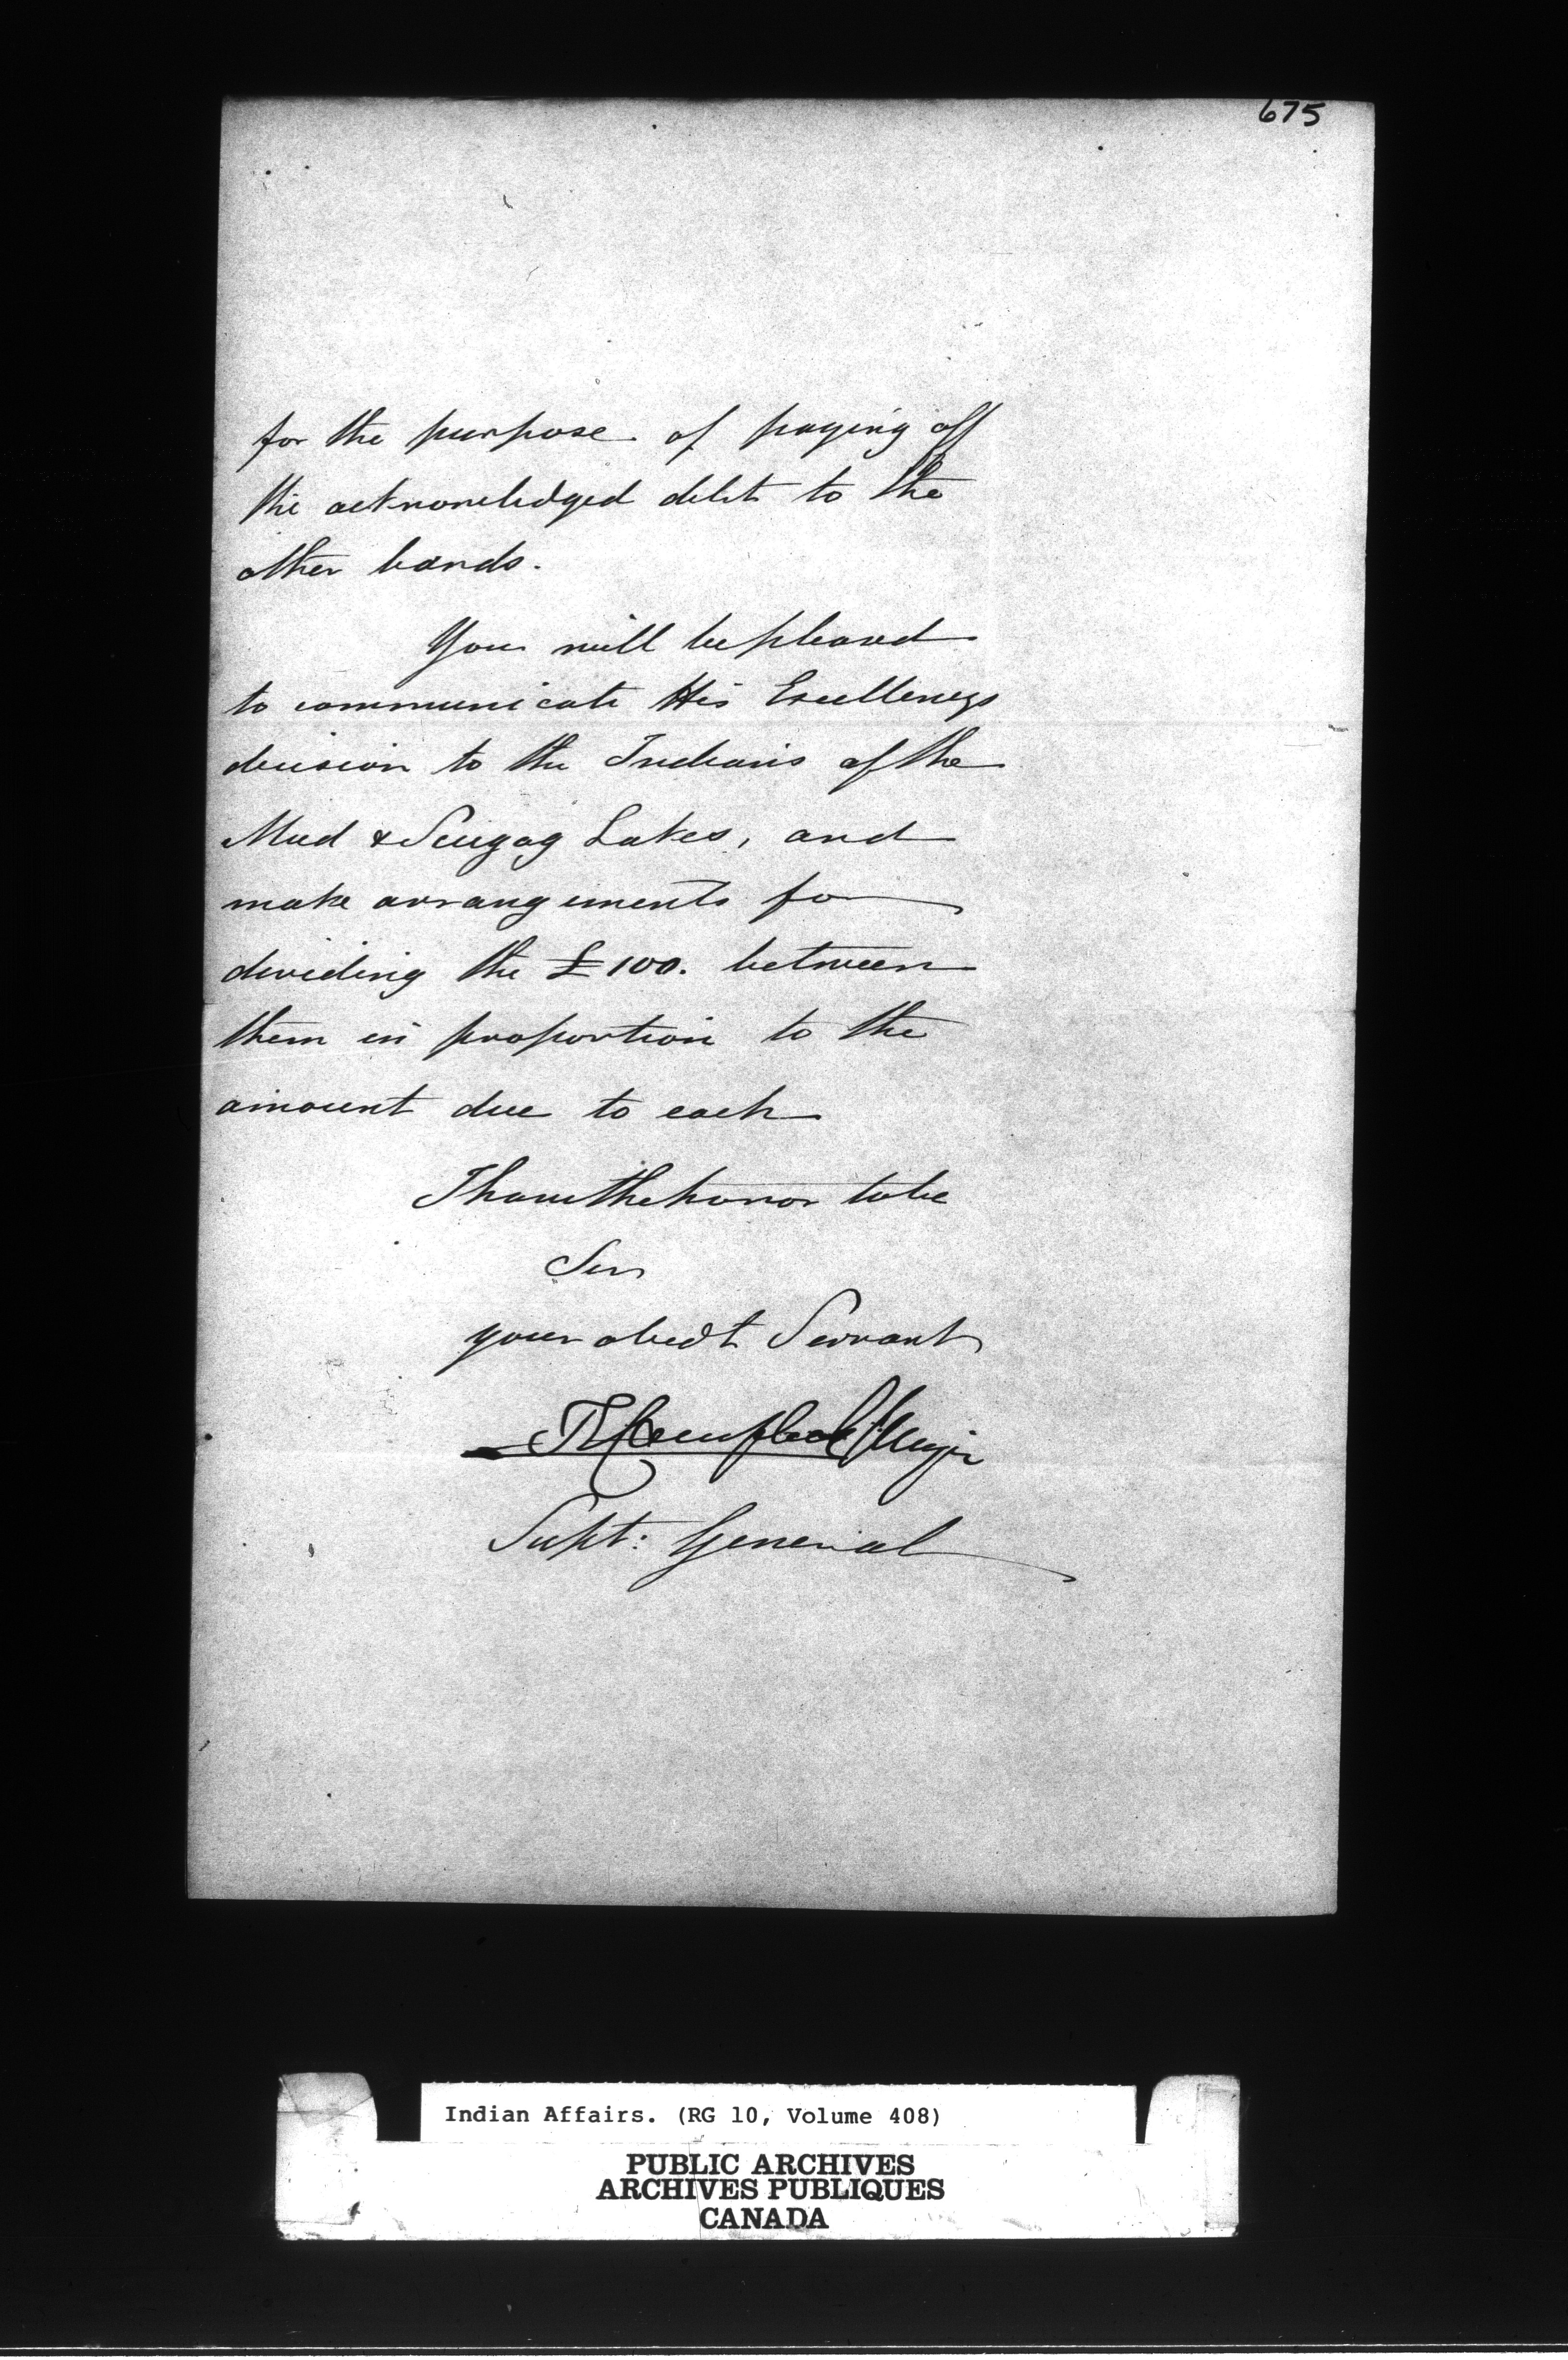 675
for the purpose of paying off
the acknowledged debt to the
other bands.
You will be pleased
to communicate His Excellencys
decision to the Indians of the
Mud & Scugog Lakes, and
make arrangements for
dividing the £100. between
them in proportion to the
amount due to each
I have the honor to be
Sir
your obedt Servant
T E Campbell Major
Supt: General
Indian Affairs. (RG 10, Volume 408)
PUBLIC ARCHIVES
ARCHIVES PUBLIQUES
CANADA